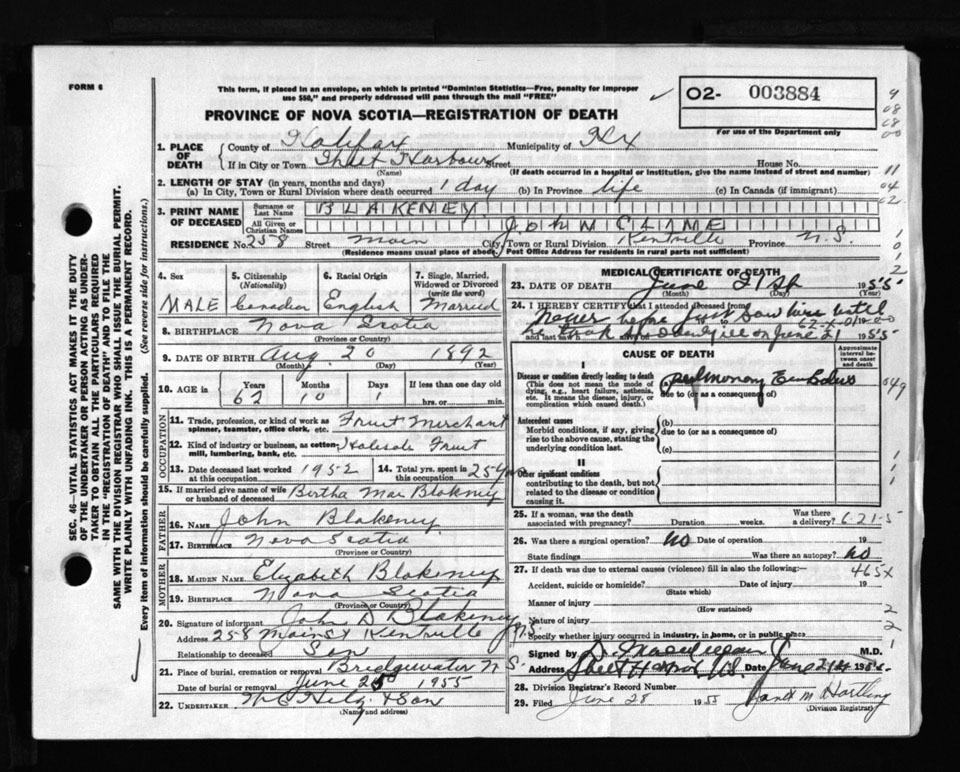 FORM 6
This form, if placed in an envelope, on which is printed "Dominion Statistics—Free, penalty for improper
use $50," and properly addressed will pass through the mail "FREE"
02- 003884
For use of the Department only
PROVINCE OF NOVA SCOTIA—REGISTRATION OF DEATH
1. PLACE OF DEATH
County of Halifax Municipality of Hx
If in City or Town Sheet Harbour Street House No.
(Name) (If death occurred in a hospital or institution, give the name instead of street and number)
2. LENGTH OF STAY (in years, months and days)
(a) In City, Town or Rural Division where death occurred 1 day (b) In Province life (c) In Canada (if immigrant)
3. PRINT NAME OF DECEASED
Surname or Last Name BLAKENEY
All Given or Christian Names JOHN CLINE
RESIDENCE No. 258 Street Main City, Town or Rural Division Kentville Province N.S.
(Residence means usual place of abode. Post Office Address for residents in rural parts not sufficient)
4. Sex MALE
5. Citizenship (Nationality) Canadian
6. Racial Origin English
7. Single, Married, Widowed or Divorced (write the word) Married
8. BIRTHPLACE Nova Scotia
(Province or Country)
9. DATE OF BIRTH Aug 20 1892
(Month) (Day) (Year)
10. AGE in Years 62 Months 10 Days If less than one day old hrs. or min.
OCCUPATION
11. Trade, profession, or kind of work as spinner, teamster, office clerk, etc. Fruit Merchant
12. Kind of industry or business, as cotton-mill, lumbering, bank, etc. Fruit
13. Date deceased last worked at this occupation 1952
14. Total yrs. spent in this occupation 25 yrs
15. If married give name of wife or husband of deceased Bertha Mae Blakeney
FATHER
16. NAME John Blakeney
17. BIRTHPLACE Nova Scotia
(Province or Country)
MOTHER
18. MAIDEN NAME Elizabeth Blakeney
19. BIRTHPLACE Nova Scotia
(Province or Country)
20. Signature of informant John D Blakeney
Address 258 Main St Kentville N.S.
Relationship to deceased Son
21. Place of burial, cremation or removal Bridgewater N.S.
Date of burial or removal June 25 1955
22. UNDERTAKER & Son
(Name and address)
MEDICAL CERTIFICATE OF DEATH
23. DATE OF DEATH June 21st 1955
(Month) (Day) (Year)
24. I HEREBY CERTIFY that I attended deceased from
Never before just saw him until
he took suddenly ill on June 21 1955
CAUSE OF DEATH
Approximate interval between onset and death
I
Disease or condition directly leading to death
(This does not mean the mode of dying, e.g., heart failure, asthenia, etc. It means the disease, injury, or complication which caused death.)
(a) pulmonary Embolus
due to (or as a consequence of)
Antecedent causes
Morbid conditions, if any, giving rise to the above cause, stating the underlying condition last.
(b)
due to (or as a consequence of)
(c)
II
Other significant conditions
contributing to the death, but not related to the disease or condition causing it.
25. If a woman, was the death associated with pregnancy? Duration weeks. Was there a delivery? 6-21-5
26. Was there a surgical operation? No Date of operation 19
State findings Was there an autopsy? No
27. If death was due to external causes (violence) fill in also the following:— 465X
Accident, suicide or homicide? Date of injury 19
(State which)
Manner of injury
(How sustained)
Nature of injury
Specify whether injury occurred in industry, in home, or in public place
Signed by M.D.
Address Sheet Harbour N.S. Date June 21st 1955
28. Division Registrar's Record Number
29. Filed June 28 1955 Janet M Hartling
(Division Registrar)
SEC. 46—VITAL STATISTICS ACT MAKES IT THE DUTY
OF THE UNDERTAKER OR PERSON ACTING AS UNDER-
TAKER TO OBTAIN ALL THE PARTICULARS REQUIRED
IN THE "REGISTRATION OF DEATH" AND TO FILE THE
SAME WITH THE DIVISION REGISTRAR WHO SHALL ISSUE THE BURIAL PERMIT.
WRITE PLAINLY WITH UNFADING INK. THIS IS A PERMANENT RECORD.
Every item of information should be carefully supplied. (See reverse side for instructions.)